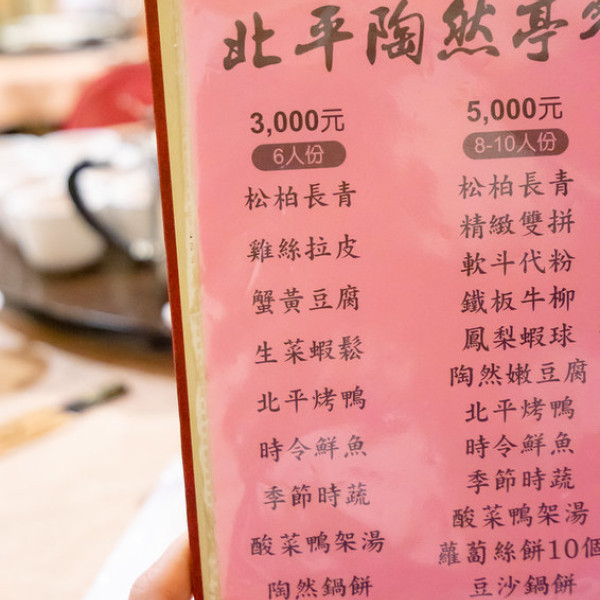 北平陶然亭
3,000元
6人份
松柏長青
雞絲拉皮
蟹黃豆腐
生菜蝦鬆
北平烤鴨
時令鮮魚
季節時蔬
酸菜鴨架湯
陶然鍋餅
5,000元
8-10人份
松柏長青
精緻雙拼
軟斗代粉
鐵板牛柳
鳳梨蝦球
陶然嫩豆腐
北平烤鴨
時令鮮魚
季節時蔬
酸菜鴨架湯
蘿蔔絲餅10個
豆沙鍋餅